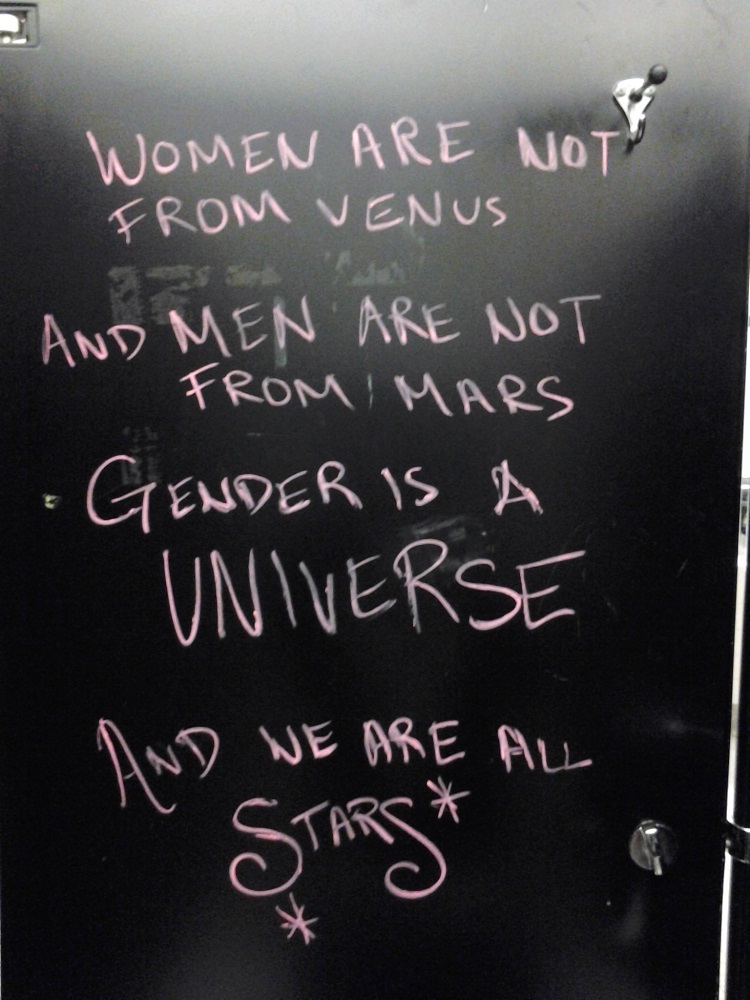 WOMEN ARE NOT
FROM VENUS
AND MEN ARE NOT
FROM MARS
GENDER IS A
UNIVERSE
AND WE ARE ALL
STARS*
*